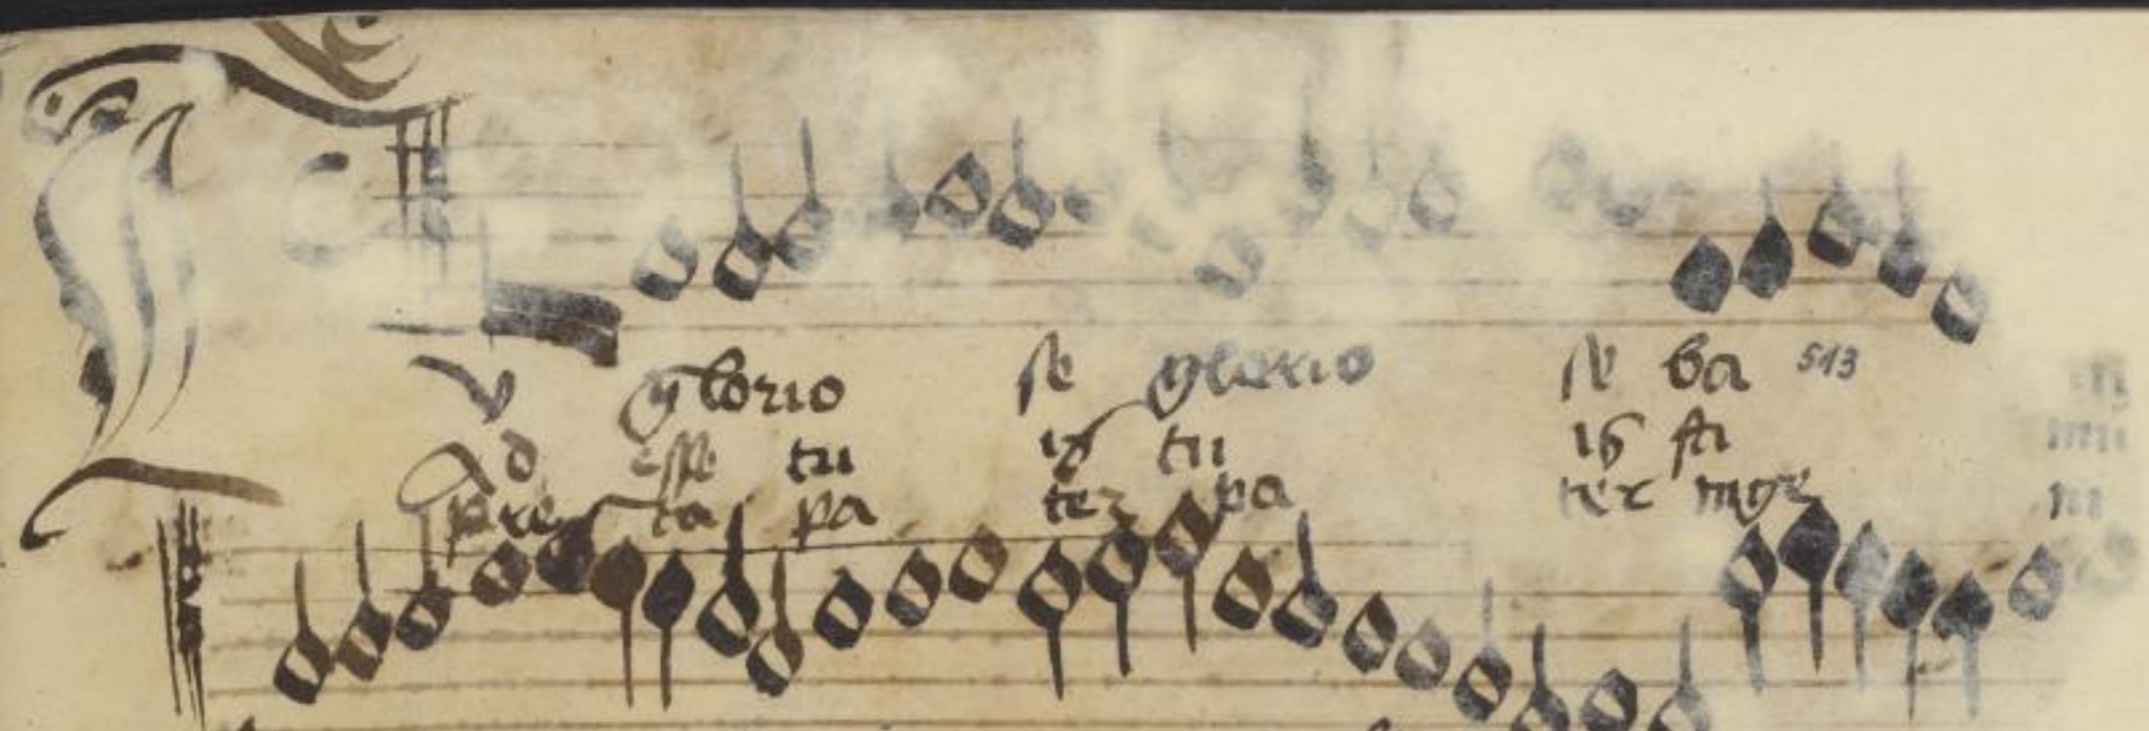 V glorio se glorio se ba 513
Ad esse tu is tu is sti
pre sta pa ter pa ter mge